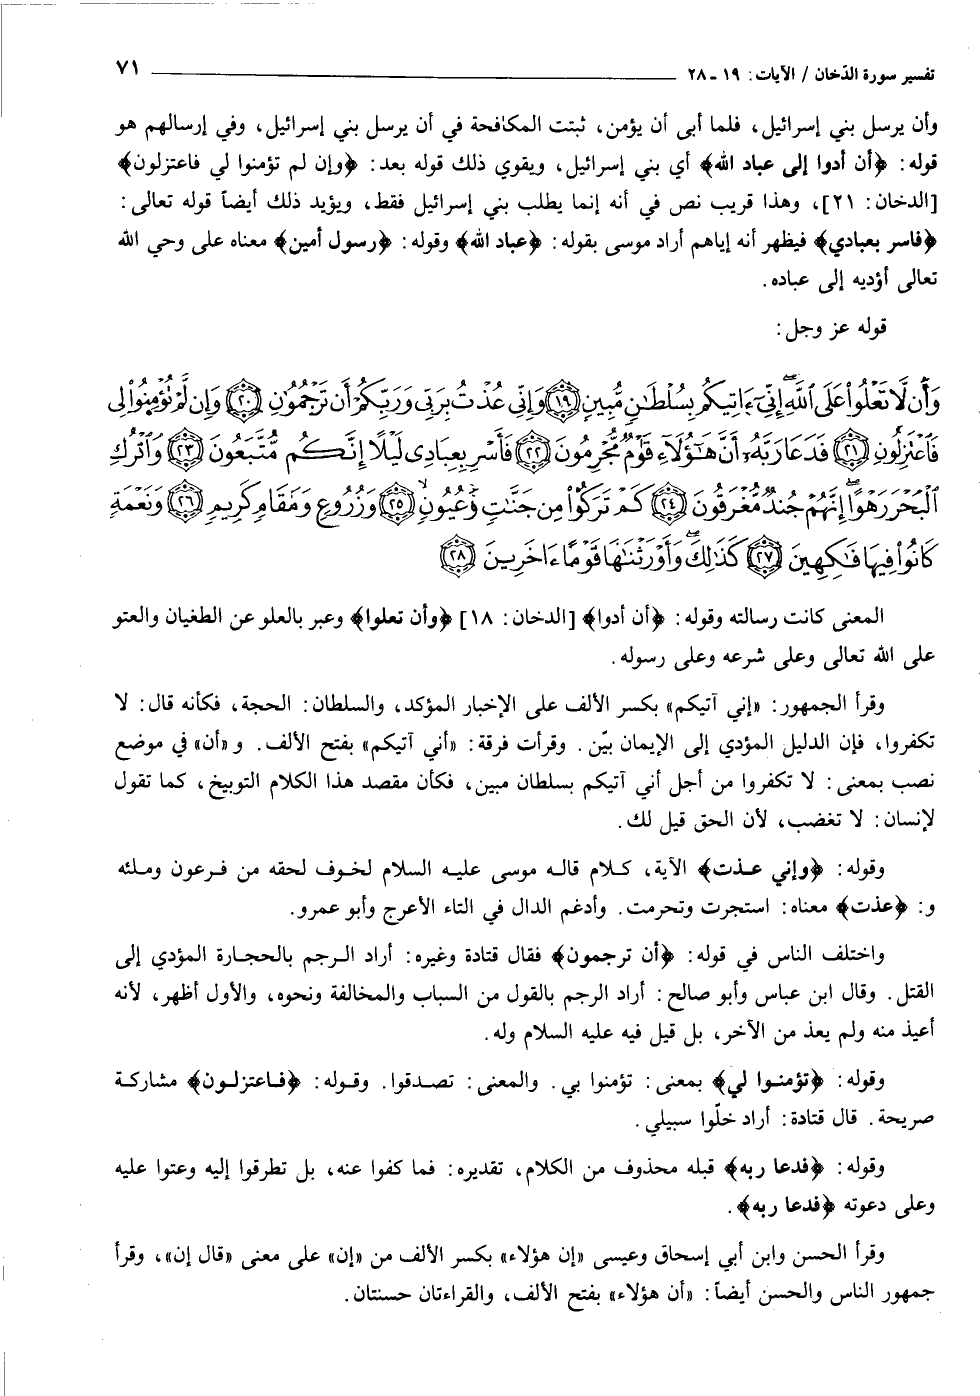 تفسير سورة الدّخان / الآيات: ١٩ ـ ٢٨ ٧١
وأن يرسل بني إسرائيل، فلما أبى أن يؤمن، ثبتت المكافحة في أن يرسل بني إسرائيل، وفي إرسالهم هو
قوله: ﴿أن أدوا إلى عباد الله﴾ أي بني إسرائيل، ويقوي ذلك قوله بعد: ﴿وإن لم تؤمنوا لي فاعتزلون﴾
[الدخان: ٢١]، وهذا قريب نص في أنه إنما يطلب بني إسرائيل فقط، ويؤيد ذلك أيضاً قوله تعالى:
﴿فاسر بعبادي﴾ فيظهر أنه إياهم أراد موسى بقوله: ﴿عباد الله﴾ وقوله: ﴿رسول أمين﴾ معناه على وحي الله
تعالى أؤديه إلى عباده.
قوله عز وجل:
وَأَن لَّا تَعْلُوا۟ عَلَى ٱللَّهِ ۖ إِنِّىٓ ءَاتِيكُم بِسُلْطَٰنٍ مُّبِينٍ ﴿١٩﴾ وَإِنِّى عُذْتُ بِرَبِّى وَرَبِّكُمْ أَن تَرْجُمُونِ ﴿٢٠﴾ وَإِن لَّمْ تُؤْمِنُوا۟ لِى
فَٱعْتَزِلُونِ ﴿٢١﴾ فَدَعَا رَبَّهُۥٓ أَنَّ هَٰٓؤُلَآءِ قَوْمٌ مُّجْرِمُونَ ﴿٢٢﴾ فَأَسْرِ بِعِبَادِى لَيْلًا إِنَّكُم مُّتَّبَعُونَ ﴿٢٣﴾ وَٱتْرُكِ
ٱلْبَحْرَ رَهْوًا ۖ إِنَّهُمْ جُندٌ مُّغْرَقُونَ ﴿٢٤﴾ كَمْ تَرَكُوا۟ مِن جَنَّٰتٍ وَعُيُونٍ ﴿٢٥﴾ وَزُرُوعٍ وَمَقَامٍ كَرِيمٍ ﴿٢٦﴾ وَنَعْمَةٍ
كَانُوا۟ فِيهَا فَٰكِهِينَ ﴿٢٧﴾ كَذَٰلِكَ ۖ وَأَوْرَثْنَٰهَا قَوْمًا ءَاخَرِينَ ﴿٢٨﴾
المعنى كانت رسالته وقوله: ﴿أن أدوا﴾ [الدخان: ١٨] ﴿وأن تعلوا﴾ وعبر بالعلو عن الطغيان والعتو
على الله تعالى وعلى شرعه وعلى رسوله.
وقرأ الجمهور: «إني آتيكم» بكسر الألف على الإخبار المؤكد، والسلطان: الحجة، فكأنه قال: لا
تكفروا، فإن الدليل المؤدي إلى الإيمان بيّن. وقرأت فرقة: «أني آتيكم» بفتح الألف. و «أن» في موضع
نصب بمعنى: لا تكفروا من أجل أني آتيكم بسلطان مبين، فكأن مقصد هذا الكلام التوبيخ، كما تقول
لإنسان: لا تغضب، لأن الحق قيل لك.
وقوله: ﴿وإني عـذت﴾ الآية، كـلام قالـه موسى عليـه السلام لخـوف لحقه من فـرعون ومـلئه
و: ﴿عذت﴾ معناه: استجرت وتحرمت. وأدغم الذال في التاء الأعرج وأبو عمرو.
واختلف الناس في قوله: ﴿أن ترجمون﴾ فقال قتادة وغيره: أراد الـرجم بالحجـارة المؤدي إلى
القتل. وقال ابن عباس وأبو صالح: أراد الرجم بالقول من السباب والمخالفة ونحوه، والأول أظهر، لأنه
أعيذ منه ولم يعذ من الآخر، بل قيل فيه عليه السلام وله.
وقوله: ﴿تؤمنـوا لي﴾ بمعنى: تؤمنوا بي. والمعنى: تصـدقوا. وقـوله: ﴿فـاعتزلـون﴾ مشاركـة
صريحة. قال قتادة: أراد خلّوا سبيلي.
وقوله: ﴿فدعا ربه﴾ قبله محذوف من الكلام، تقديره: فما كفوا عنه، بل تطرقوا إليه وعتوا عليه
وعلى دعوته ﴿فدعا ربه﴾.
وقرأ الحسن وابن أبي إسحاق وعيسى «إن هؤلاء» بكسر الألف من «إن» على معنى «قال إن»، وقرأ
جمهور الناس والحسن أيضاً: «أن هؤلاء» بفتح الألف، والقراءتان حسنتان.